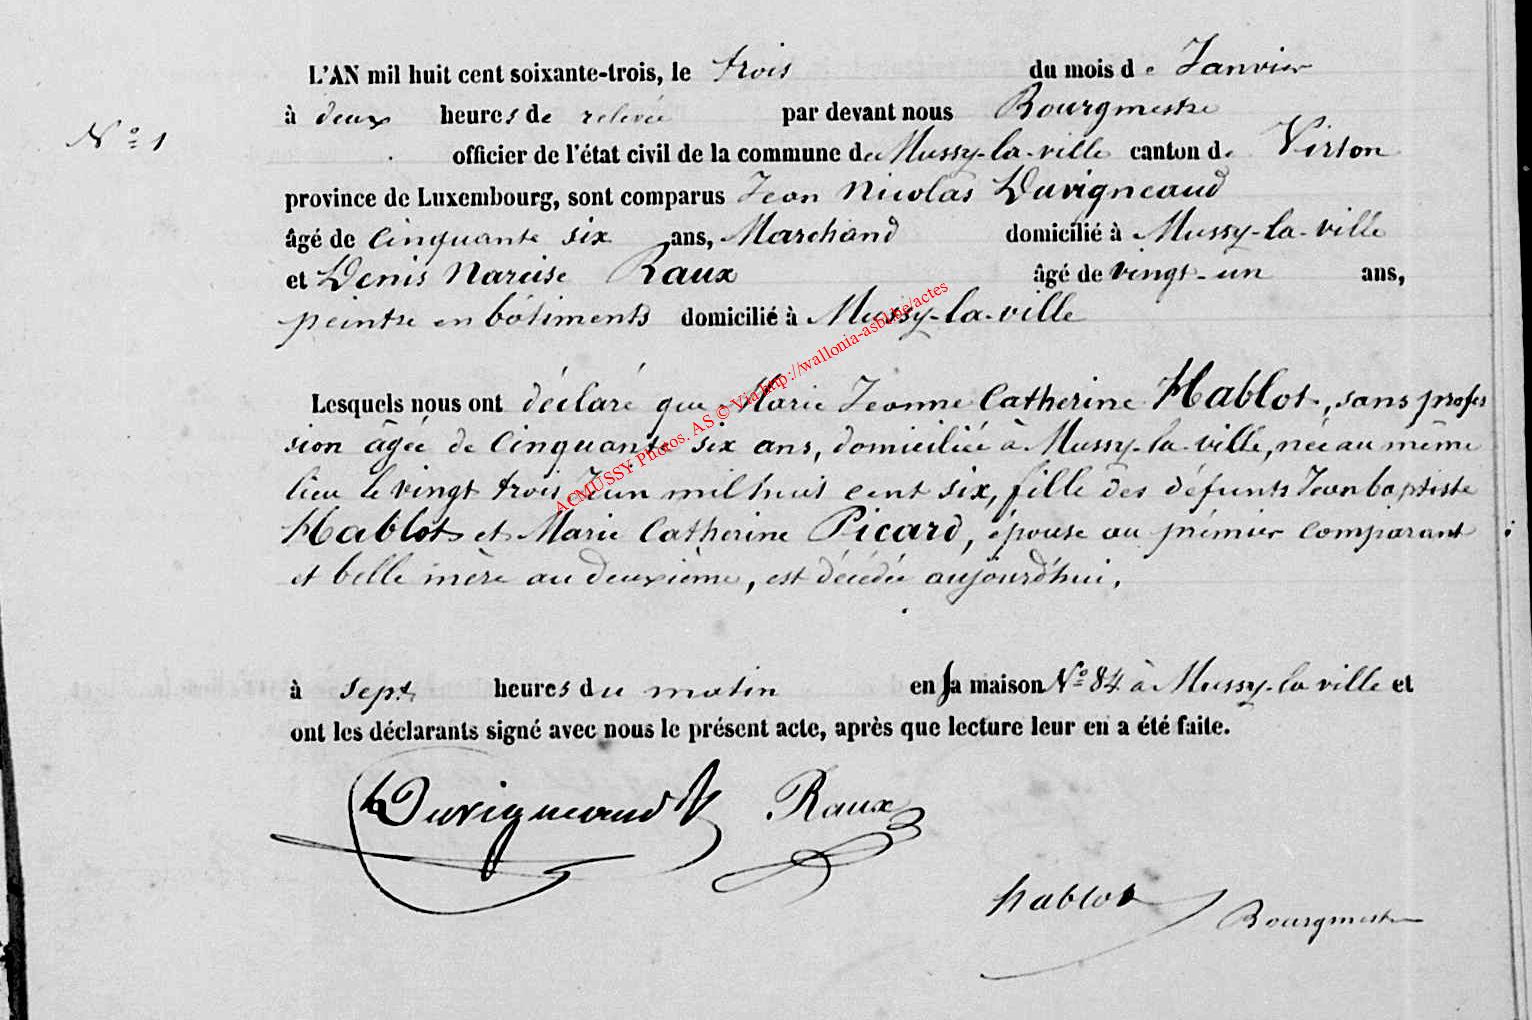 L'AN mil huit cent soixante-trois, le trois du mois de Janvier
à deux heures de relevée par devant nous Bourgmestre
N° 1
officier de l'état civil de la commune de Mussy-la-ville canton de Virton
province de Luxembourg, sont comparus Jean Nicolas Duvigneaud
âgé de Cinquante six ans, Marchand domicilié à Mussy-la-ville
et Denis Narcise Raux âgé de vingt-un ans,
peintre en bâtiments domicilié à Mussy-la-ville
Lesquels nous ont déclaré que Marie Jeanne Catherine Hablot, sans profes
sion âgée de Cinquante six ans, domiciliée à Mussy-la-ville, née au même
lieu le vingt trois Juin mil huit cent six, fille des défunts Jean baptiste
Hablot et Marie Catherine Picard, épouse au prémier comparant
et belle mère au deuxième, est décédée aujourd'hui,
à sept heures du matin en sa maison N° 84 à Mussy-la ville et
ont les déclarants signé avec nous le présent acte, après que lecture leur en a été faite.
Duvigneaud Raux
hablot Bourgmestre
ACMUSSY Photos. AS © Via http://wallonia-asbl.be/actes